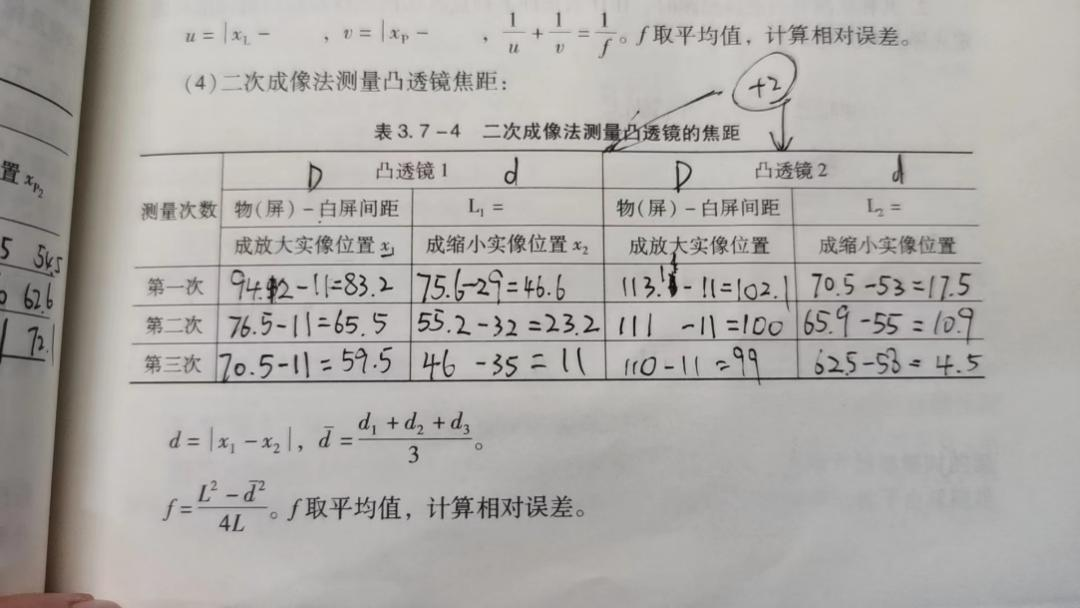 u = |x_L −　　, v = |x_P −　　, 1/u + 1/v = 1/f。f取平均值，计算相对误差。
(4)二次成像法测量凸透镜焦距：
+2
表 3.7-4　二次成像法测量凸透镜的焦距
置 x_P2
测量次数　D 凸透镜 1 d　D 凸透镜 2 d
物(屏)-白屏间距　L₁ =　物(屏)-白屏间距　L₂ =
成放大实像位置 x₁　成缩小实像位置 x₂　成放大实像位置　成缩小实像位置
5 54.5
第一次　94.2-11=83.2　75.6-29=46.6　113.1-11=102.1　70.5-53=17.5
0 62.6
第二次　76.5-11=65.5　55.2-32=23.2　111-11=100　65.9-55=10.9
72.1
第三次　70.5-11=59.5　46-35=11　110-11=99　62.5-58=4.5
d = |x₁ - x₂|, d̄ = (d₁ + d₂ + d₃)/3。
f = (L² - d̄²)/4L。f取平均值，计算相对误差。